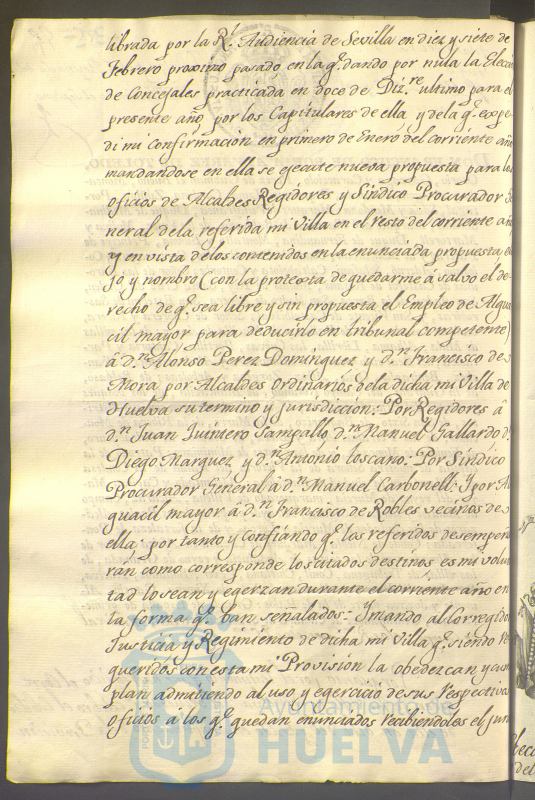 librada por la Rl. Audiencia de Sevilla en diez y siete de
Febrero proximo pasado, en la q.e dando por nula la Elecci
de Concejales practicada en doce de Diz.re ultimo para el
presente año, por los Capitulares de ella y de la q.e expe-
di mi confirmacion en primero de Enero del corriente año
mandandose en ella se egecute nueva propuesta para los
oficios de Alcaldes Regidores y Sindico Procurador Ge
neral de la referida mi Villa en el resto del corriente año
y en vista de los contenidos en la enunciada propuesta, e
jo y nombro (con la protexta de quedarme á salvo el de-
recho de q.e sea libre y sin propuesta el Empleo de Algua
cil mayor para deducirlo en tribunal competente)
á d.n Alonso Perez Dominguez y d.n Francisco de
Mora por Alcaldes Ordinarios de la dicha mi Villa de
Huelva su termino y jurisdiccion: Por Regidores á
d.n Juan Quintero Sampallo d.n Manuel Gallardo d.n
Diego Marquez y d.n Antonio Toscano: Por Sindico
Procurador General á d.n Manuel Carbonell: Y por Al
guacil mayor á d.n Francisco de Robles vecinos de
ella; por tanto y confiando q.e los referidos desempeña
rán como corresponde los citados destinos es mi volun
tad lo sean y egerzan durante el corriente año en
la forma q.e van señalados: Y mando al Corregidor
Justicia y Regimiento de dicha mi Villa q.e siendo re
queridos con esta mi Provision la obedezcan y cum
plan admitiendo al uso y egercicio de sus respectivos
oficios á los q.e quedan enunciados recibiendoles el jura
Ayuntamiento de
HUELVA